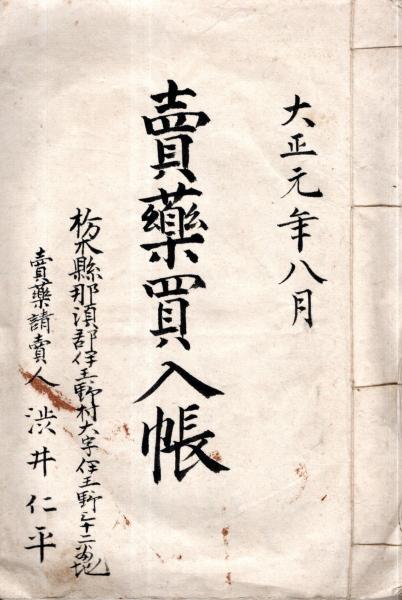 大正元年八月
賣藥買入帳
栃木縣那須郡伊王野村大字伊王野三十二番地
賣藥請賣人 渋井仁平